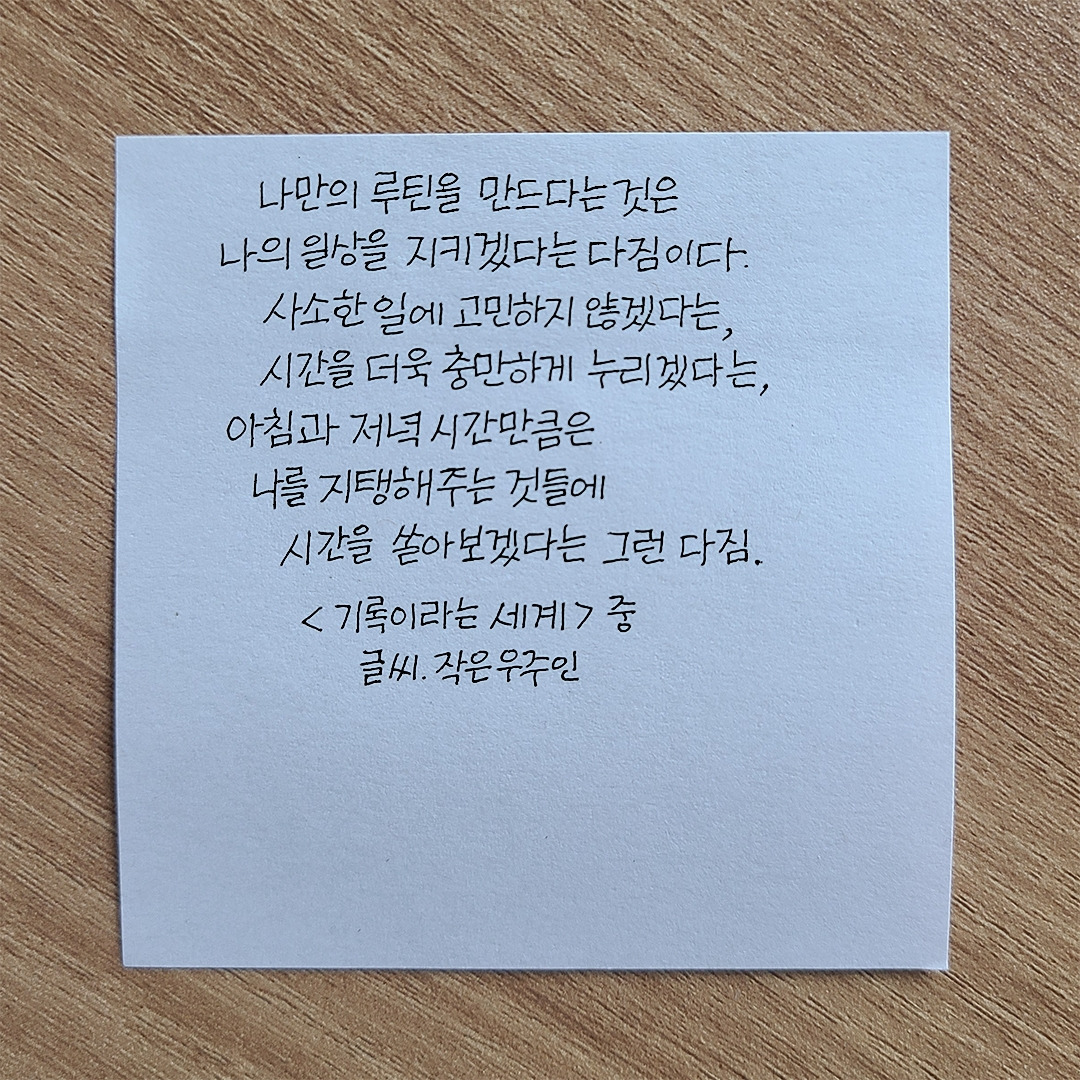 나만의 루틴을 만드다는 것은
나의 일상을 지키겠다는 다짐이다.
사소한 일에 고민하지 않겠다는,
시간을 더욱 충만하게 누리겠다는,
아침과 저녁 시간만큼은
나를 지탱해주는 것들에
시간을 쏟아보겠다는 그런 다짐.
<기록이라는 세계> 중
글씨. 작은우주인